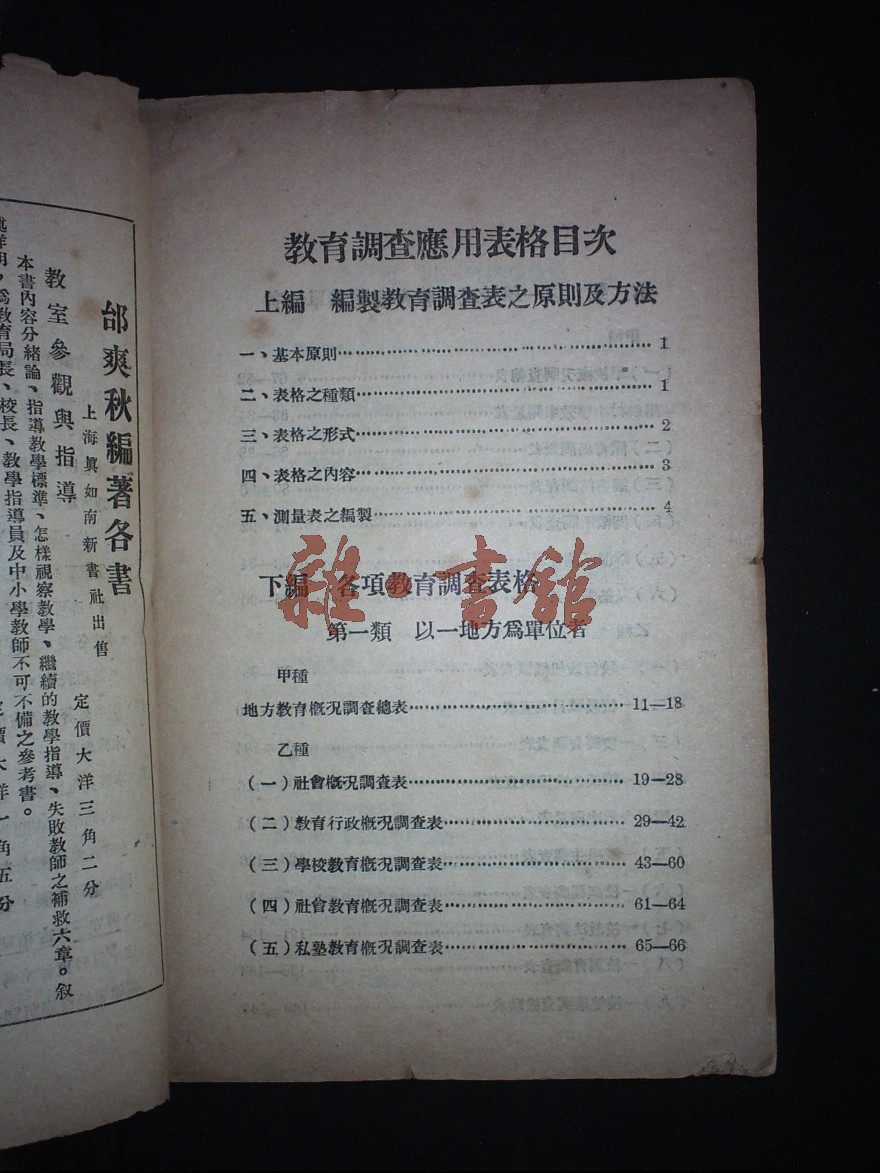 教育調查應用表格目次
上編　編製教育調查表之原則及方法
一、基本原則……………………………………1
二、表格之種類…………………………………1
三、表格之形式…………………………………2
四、表格之內容…………………………………3
五、測量表之編製………………………………4
下編　各項教育調查表格
第一類　以一地方爲單位者
甲種
地方教育概況調查總表…………………………11—18
乙種
（一）社會概況調查表…………………………19—28
（二）教育行政概況調查表……………………29—42
（三）學校教育概況調查表……………………43—60
（四）社會教育概況調查表……………………61—64
（五）私塾教育概況調查表……………………65—66
雜·書館
邰爽秋編著各書
上海眞如南新書社出售
教室參觀與指導　定價大洋三角二分
本書內容分緒論、指導教學標準、怎樣視察教學、繼續的教學指導、失敗教師之補救六章。叙
述詳明，爲教育局長、校長、教學指導員及中小學教師不可不備之參考書。